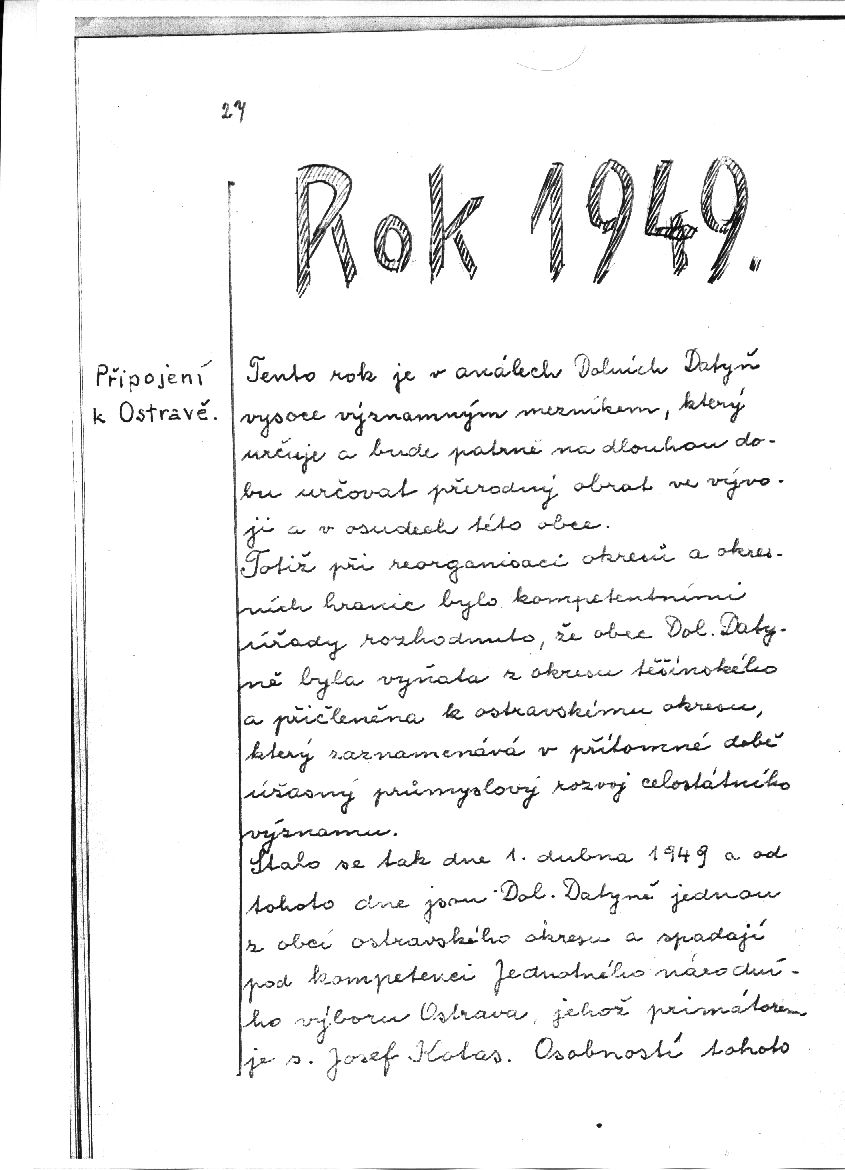 27
Rok 1949.
Připojení
k Ostravě.
Tento rok je v análech Dolních Datyň
vysoce významným mezníkem, který
určuje a bude patrně na dlouhou do-
bu určovat přerodný obrat ve vývo-
ji a v osudech této obce.
Totiž při reorganisaci okresů a okres-
ních hranic bylo kompetentními
úřady rozhodnuto, že obec Dol. Daty-
ně byla vyňata z okresu těšínského
a přičleněna k ostravskému okresu,
který zaznamenává v přítomné době
úžasný průmyslový rozvoj celostátního
významu.
Stalo se tak dne 1. dubna 1949 a od
tohoto dne jsou Dol. Datyně jednou
z obcí ostravského okresu a spadají
pod kompetenci Jednotného národní-
ho výboru Ostrava, jehož primátorem
je s. Josef Kotas. Osobností tohoto